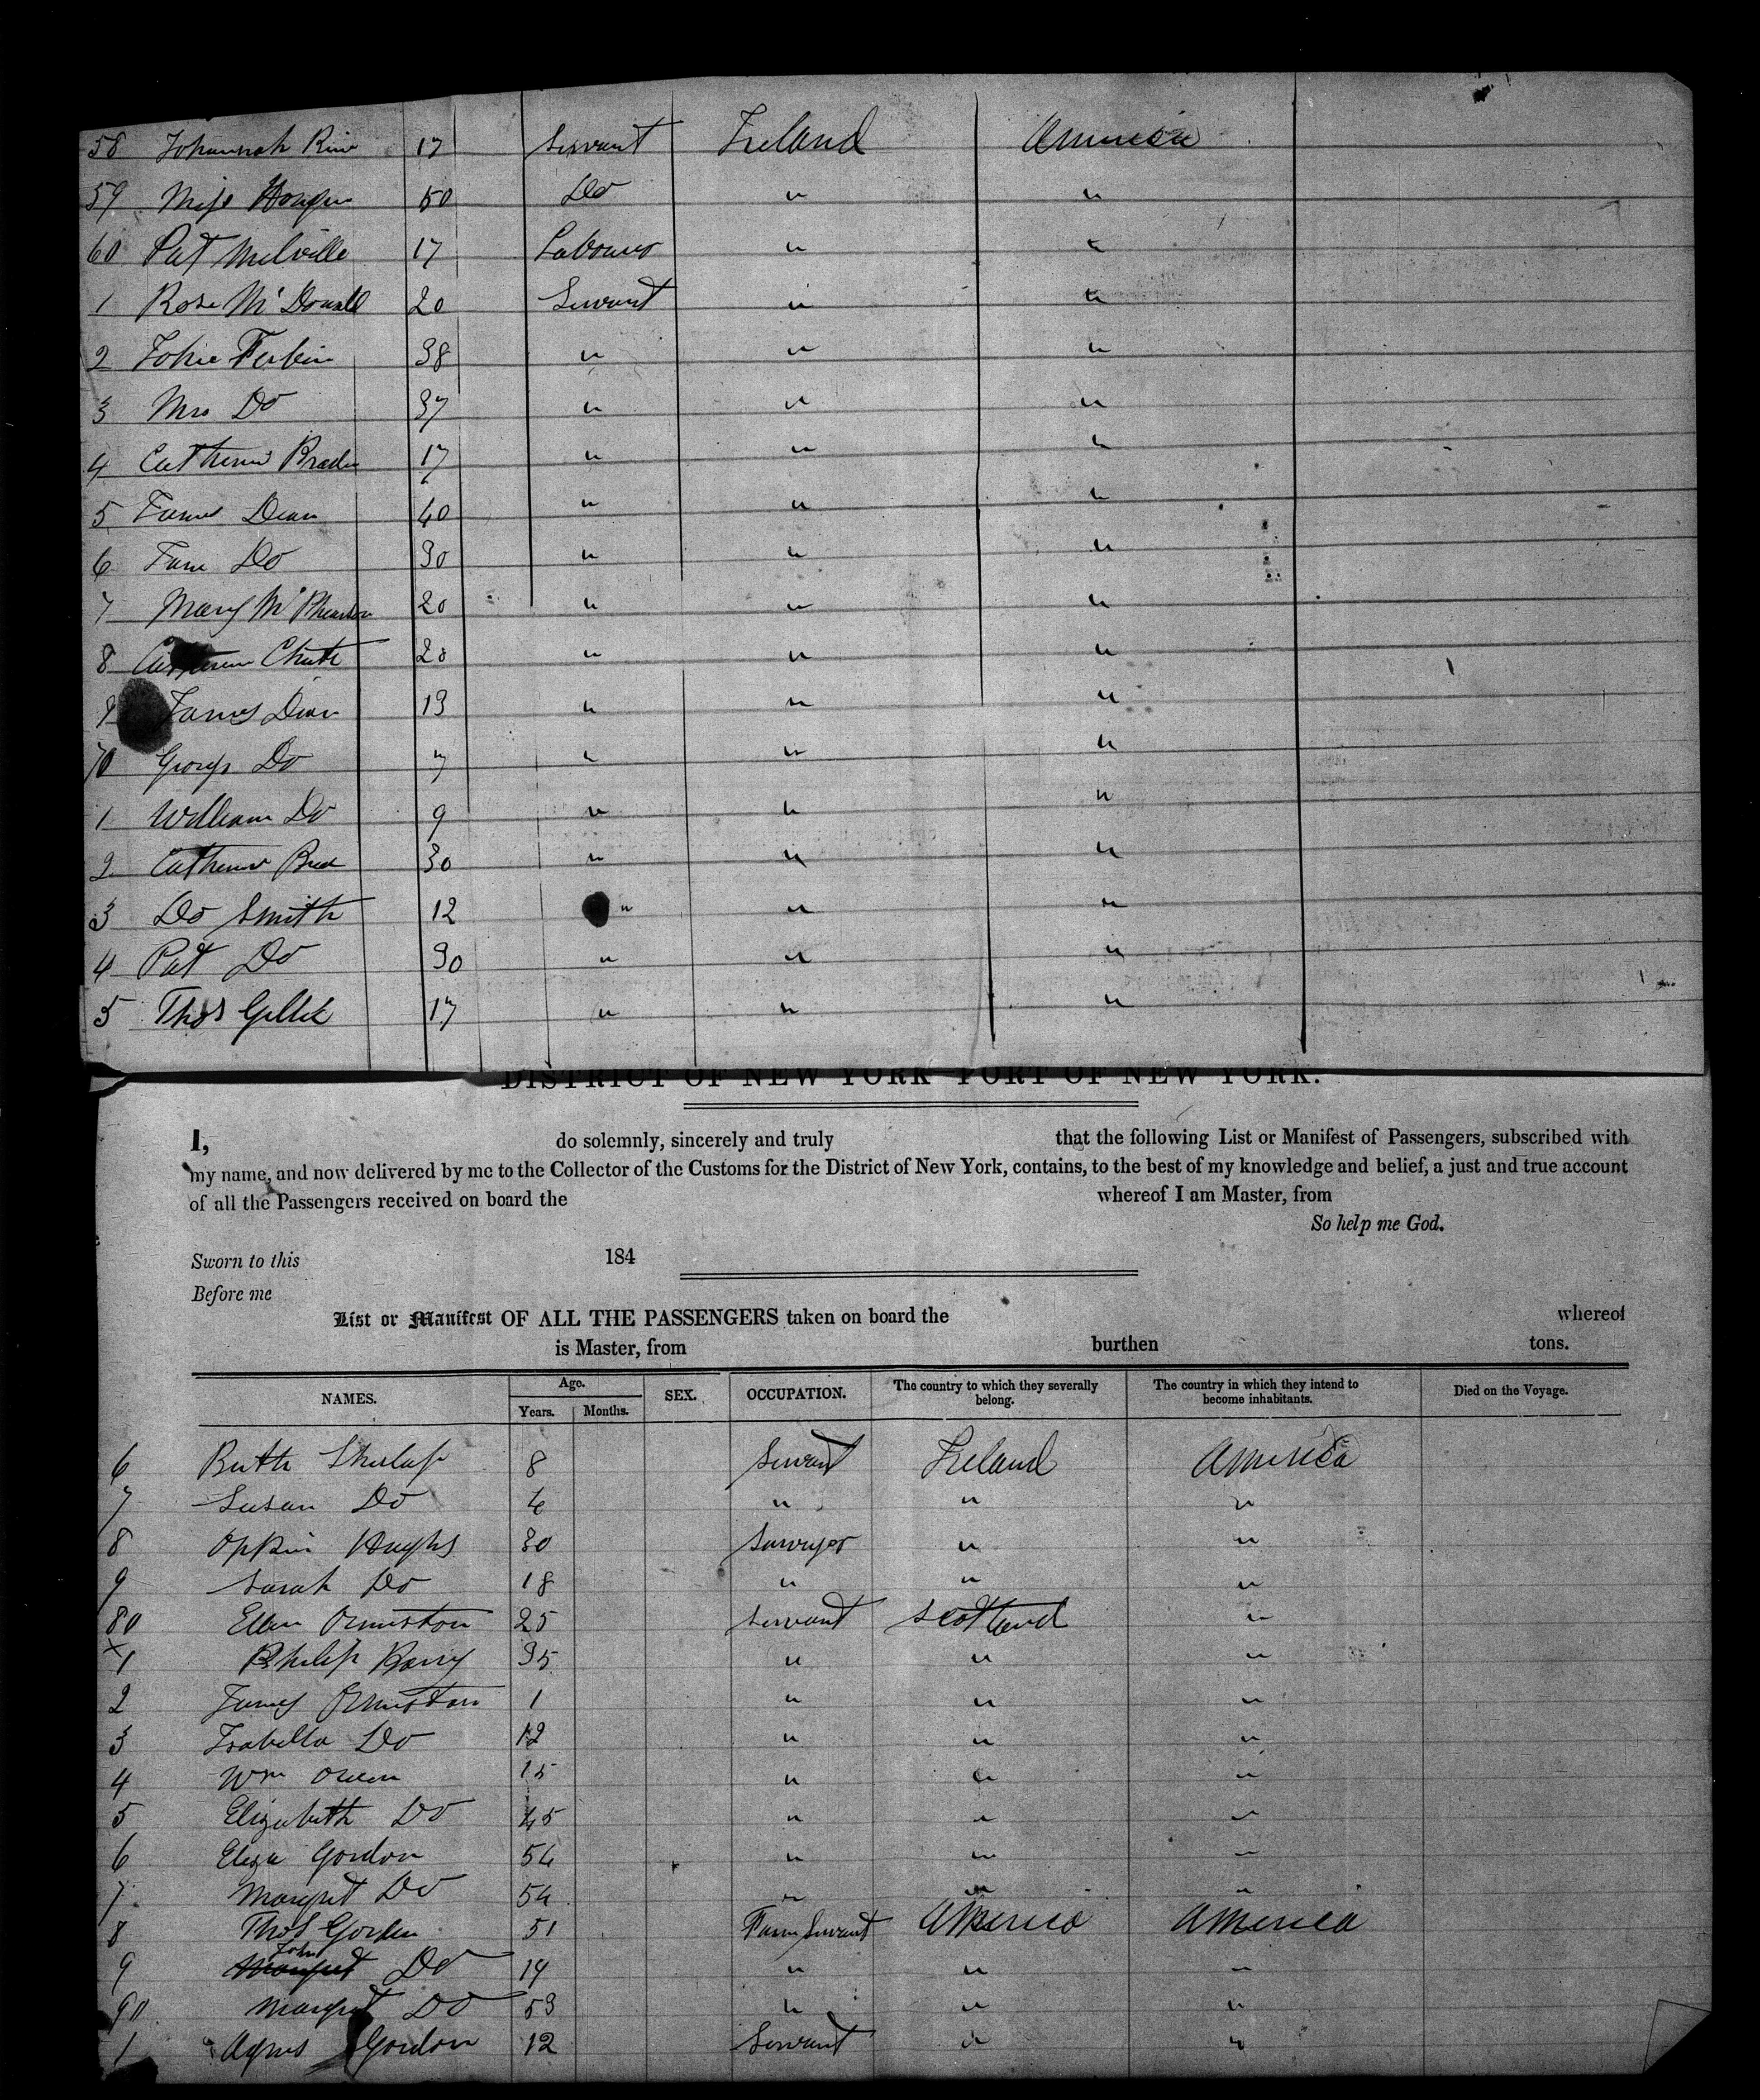 58 Johannah 17 Servant Ireland America
59 Miss 50 Do " "
60 Pat Melville 17 Labourer " "
1 Rose McDonald 20 Servant " "
2 John 38 " " "
3 Mrs Do 37 " " "
4 Catherine 17 " " "
5 James Dean 40 " " "
6 Jane Do 30 " " "
7 Mary McPhearson 20 " " "
8 Catherine 20 " " "
9 James Dean 13 " " "
70 George Do 7 " " "
1 William Do 9 " " "
2 Catherine 30 " " "
3 Do Smith 12 " " "
4 Pat Do 30 " " "
5 Thos 17 " " "
DISTRICT OF NEW YORK PORT OF NEW YORK.
I, do solemnly, sincerely and truly that the following List or Manifest of Passengers, subscribed with
my name, and now delivered by me to the Collector of the Customs for the District of New York, contains, to the best of my knowledge and belief, a just and true account
of all the Passengers received on board the whereof I am Master, from
So help me God.
Sworn to this 184
Before me
List or Manifest OF ALL THE PASSENGERS taken on board the whereof
is Master, from burthen tons.
NAMES. Age. SEX. OCCUPATION. The country to which they severally belong. The country in which they intend to become inhabitants. Died on the Voyage.
Years. Months.
6 8 Servant Ireland America
7 Susan Do 4 " " "
8 30 Surveyor " "
9 Sarah Do 18 " " "
80 Ellen Ormiston 25 Servant Scotland "
x1 Philip Barry 35 " " "
2 James Ormiston 1 " " "
3 Isabella Do 12 " " "
4 Wm 15 " " "
5 Elizabeth Do 45 " " "
6 Eliza Gordon 54 " " "
7 Margret Do 54 " " "
8 Thos Gordon 51 Farm Servant America America
9 John Do 14 " " "
90 Margret Do 53 " " "
1 Agnes Gordon 12 Servant " "